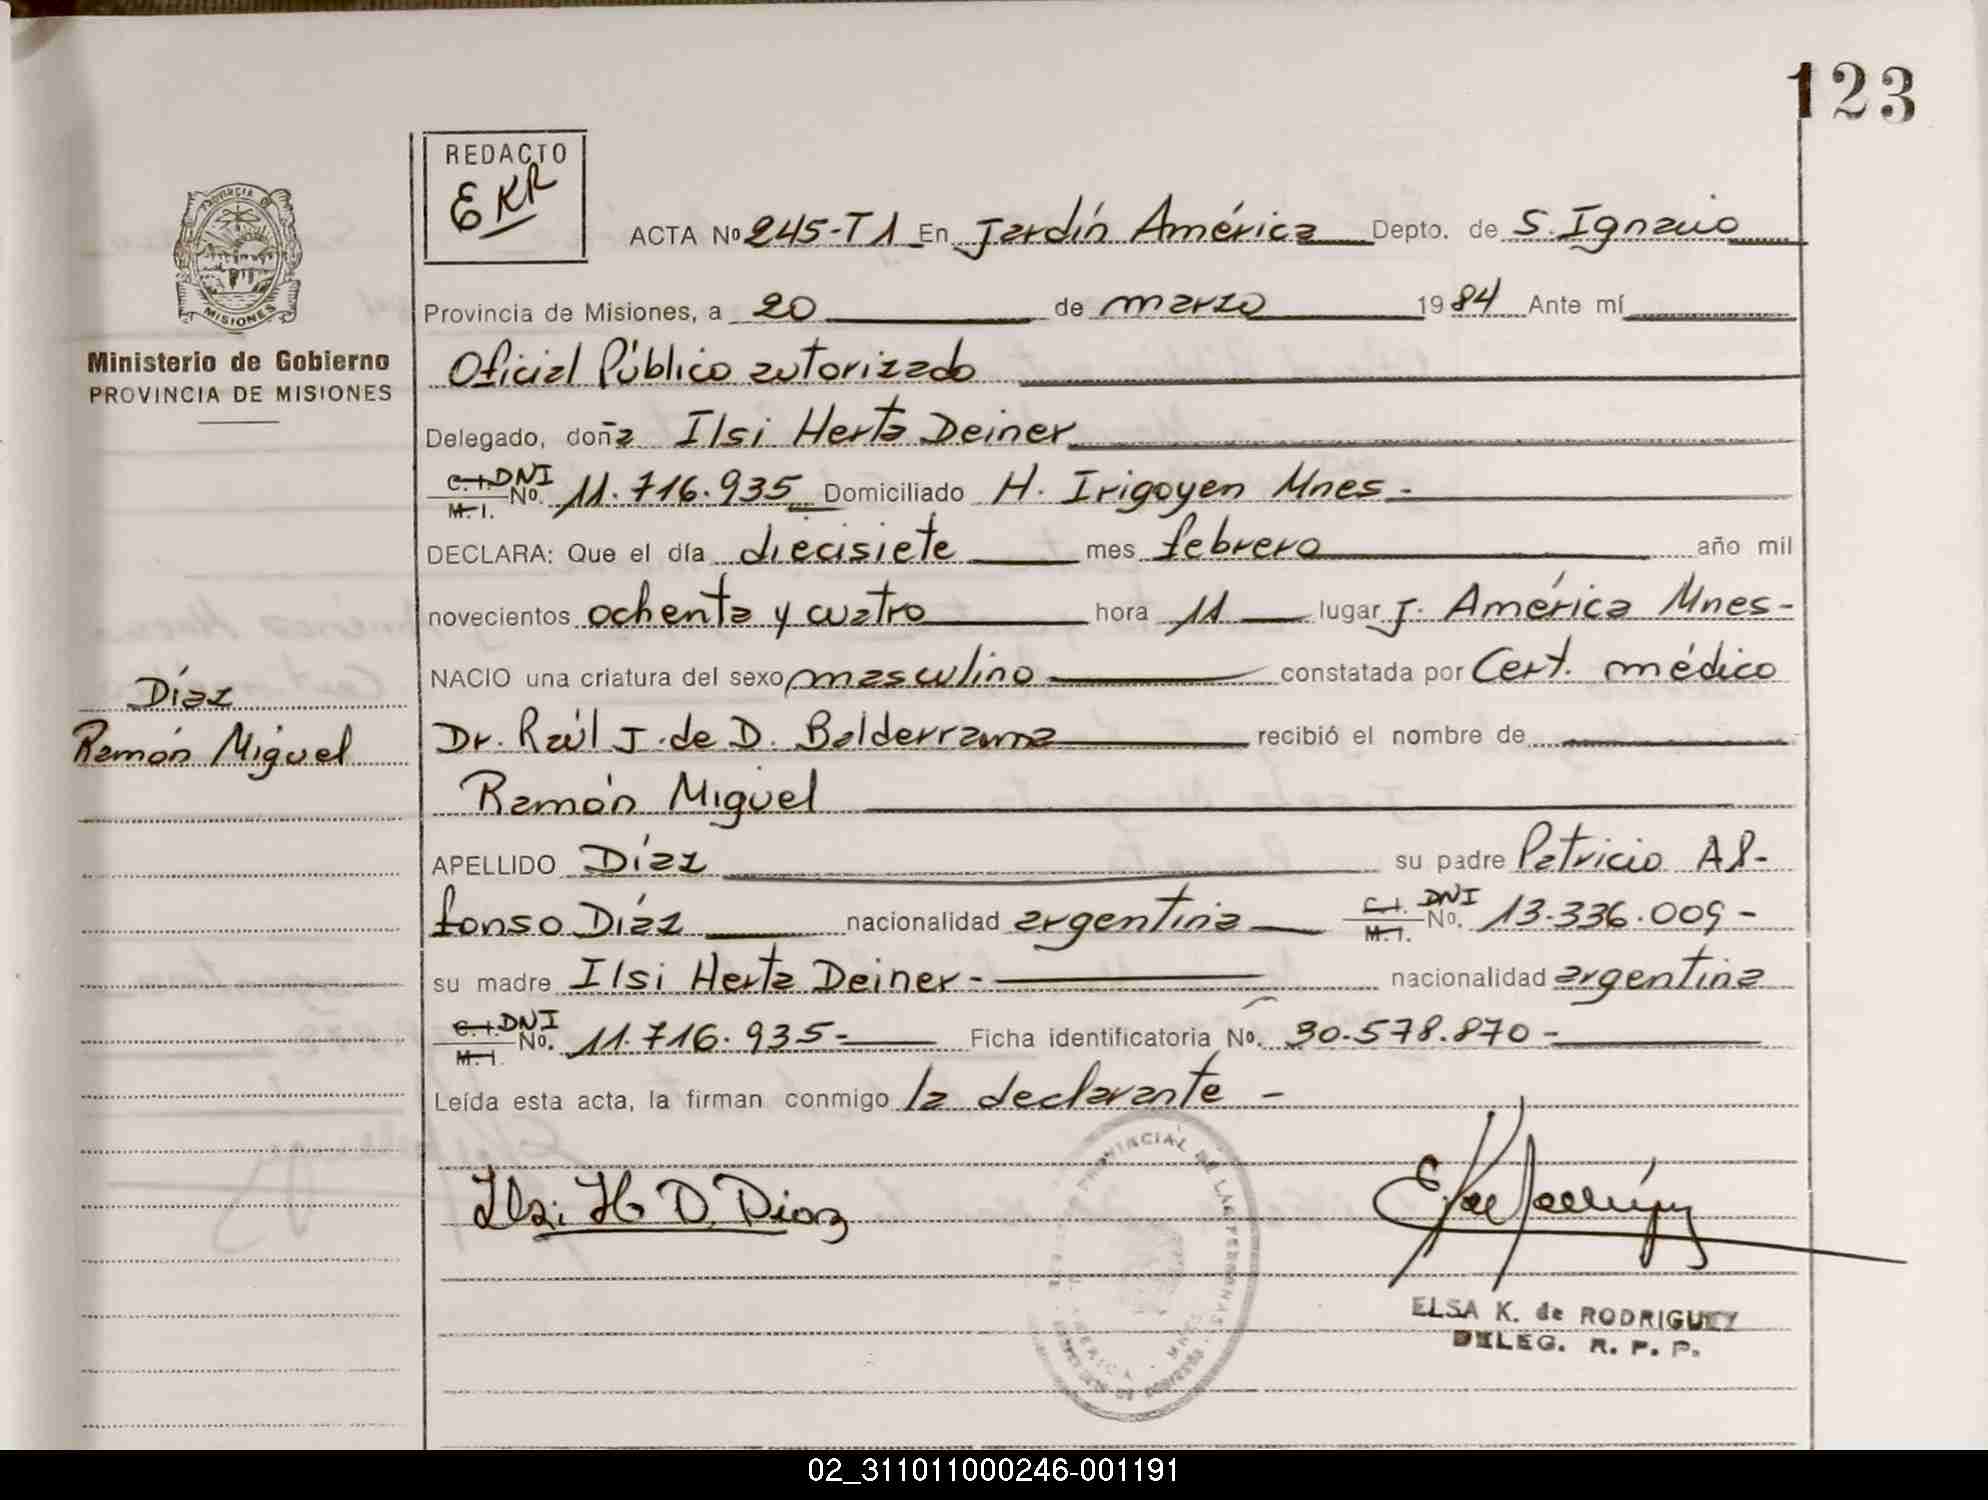 123
REDACTO
EKR
ACTA Nº 245-T1 En Jardín América Depto. de S. Ignacio
PROVINCIA DE
MISIONES
Provincia de Misiones, a 20 de marzo 1984 Ante mí
Ministerio de Gobierno
PROVINCIA DE MISIONES
Oficial Público autorizado
Delegado, doña Ilsi Herta Deiner
C.I. DNI
M.I. No. 11.716.935 Domiciliado H. Irigoyen Mnes-
DECLARA: Que el día diecisiete mes febrero año mil
novecientos ochenta y cuatro hora 11 lugar J. América Mnes-
NACIO una criatura del sexo masculino constatada por Cert. médico
Díaz
Ramón Miguel
Dr. Raúl J. de D. Balderrama recibió el nombre de
Ramón Miguel
APELLIDO Díaz su padre Patricio Al-
fonso Díaz nacionalidad argentina C.I. DNI M.I. No. 13.336.009-
su madre Ilsi Herta Deiner- nacionalidad argentina
C.I. DNI
M.I. No. 11.716.935- Ficha identificatoria No. 30.578.870-
Leída esta acta, la firman conmigo la declarante -
Ilsi H D. Diaz
PROVINCIAL DE LAS PERSONAS
ELSA K. de RODRIGUEZ
DELEG. R. P. P.
02_311011000246-001191